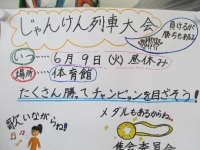 じゃんけん列車大会
いつ…6月9日(火)昼休み
場所…体育館
たくさん勝ってチャンピオンを目ざそう!
歌いながらね!
メダルもあるからね。
集会委員会